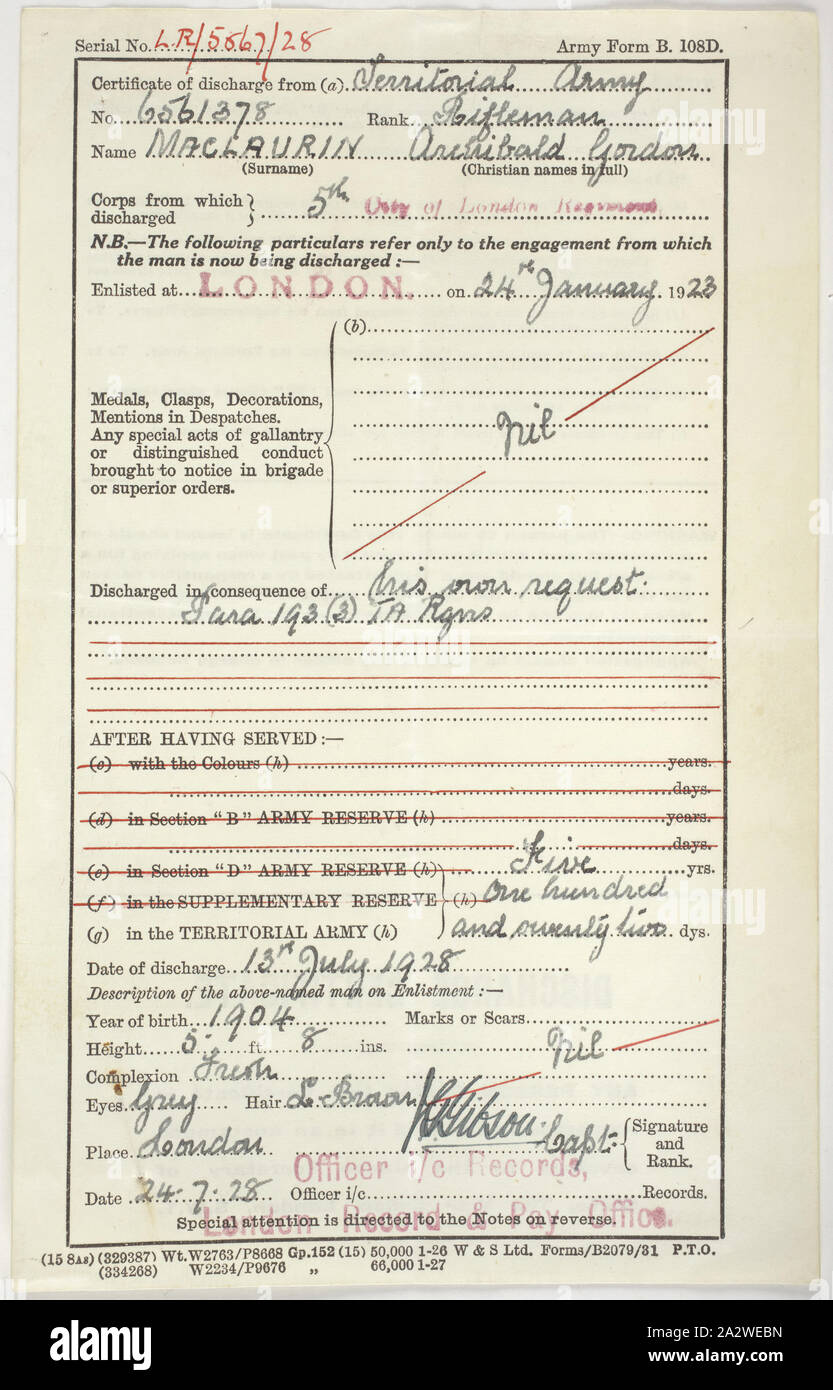 Serial No. LR/5567/28 Army Form B. 108D.
Certificate of discharge from (a) Territorial Army
No. 6561378 Rank Rifleman
Name MACLAURIN Archibald Gordon
(Surname) (Christian names in full)
Corps from which discharged } 5th City of London Regiment.
N.B.—The following particulars refer only to the engagement from which
the man is now being discharged :—
Enlisted at LONDON. on 24th January 1923
(b)
Medals, Clasps, Decorations,
Mentions in Despatches.
Any special acts of gallantry
or distinguished conduct
brought to notice in brigade
or superior orders.
Nil
Discharged in consequence of his own request.
Para 193 (3) TA Rgns
AFTER HAVING SERVED :—
(c) with the Colours (h) years.
days.
(d) in Section "B" ARMY RESERVE (h) years.
days.
(e) in Section "D" ARMY RESERVE (h) Five yrs.
(f) in the SUPPLEMENTARY RESERVE (h) One hundred
(g) in the TERRITORIAL ARMY (h) and seventy two dys.
Date of discharge 13th July 1928
Description of the above-named man on Enlistment :—
Year of birth 1904 Marks or Scars
Height 5 ft. 8 ins. Nil
Complexion Fresh
Eyes Grey Hair L. Brown
Gibson Capt. { Signature and Rank.
Place London
Officer i/c Records,
Date 24-7-28 Officer i/c Records.
London Record & Pay Office.
Special attention is directed to the Notes on reverse.
(15 8As) (329387) Wt.W2763/P8668 Gp.152 (15) 50,000 1-26 W & S Ltd. Forms/B2079/31 P.T.O.
(334268) W2234/P9676 „ 66,000 1-27
alamy
Image ID: 2A2WEBN
www.alamy.com